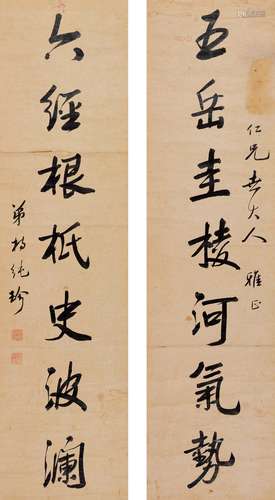 五岳圭棱河氣勢
仁兄世大人 雅正
六經根柢史波瀾
弟 純珍